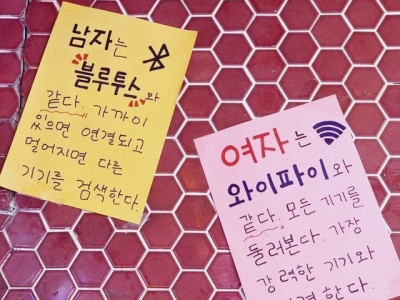 남자는
블루투스와
같다. 가까이
있으면 연결되고
멀어지면 다른
기기를 검색한다.
여자는
와이파이와
같다. 모든 기기를
둘러본다. 가장
강력한 기기와
결한다.